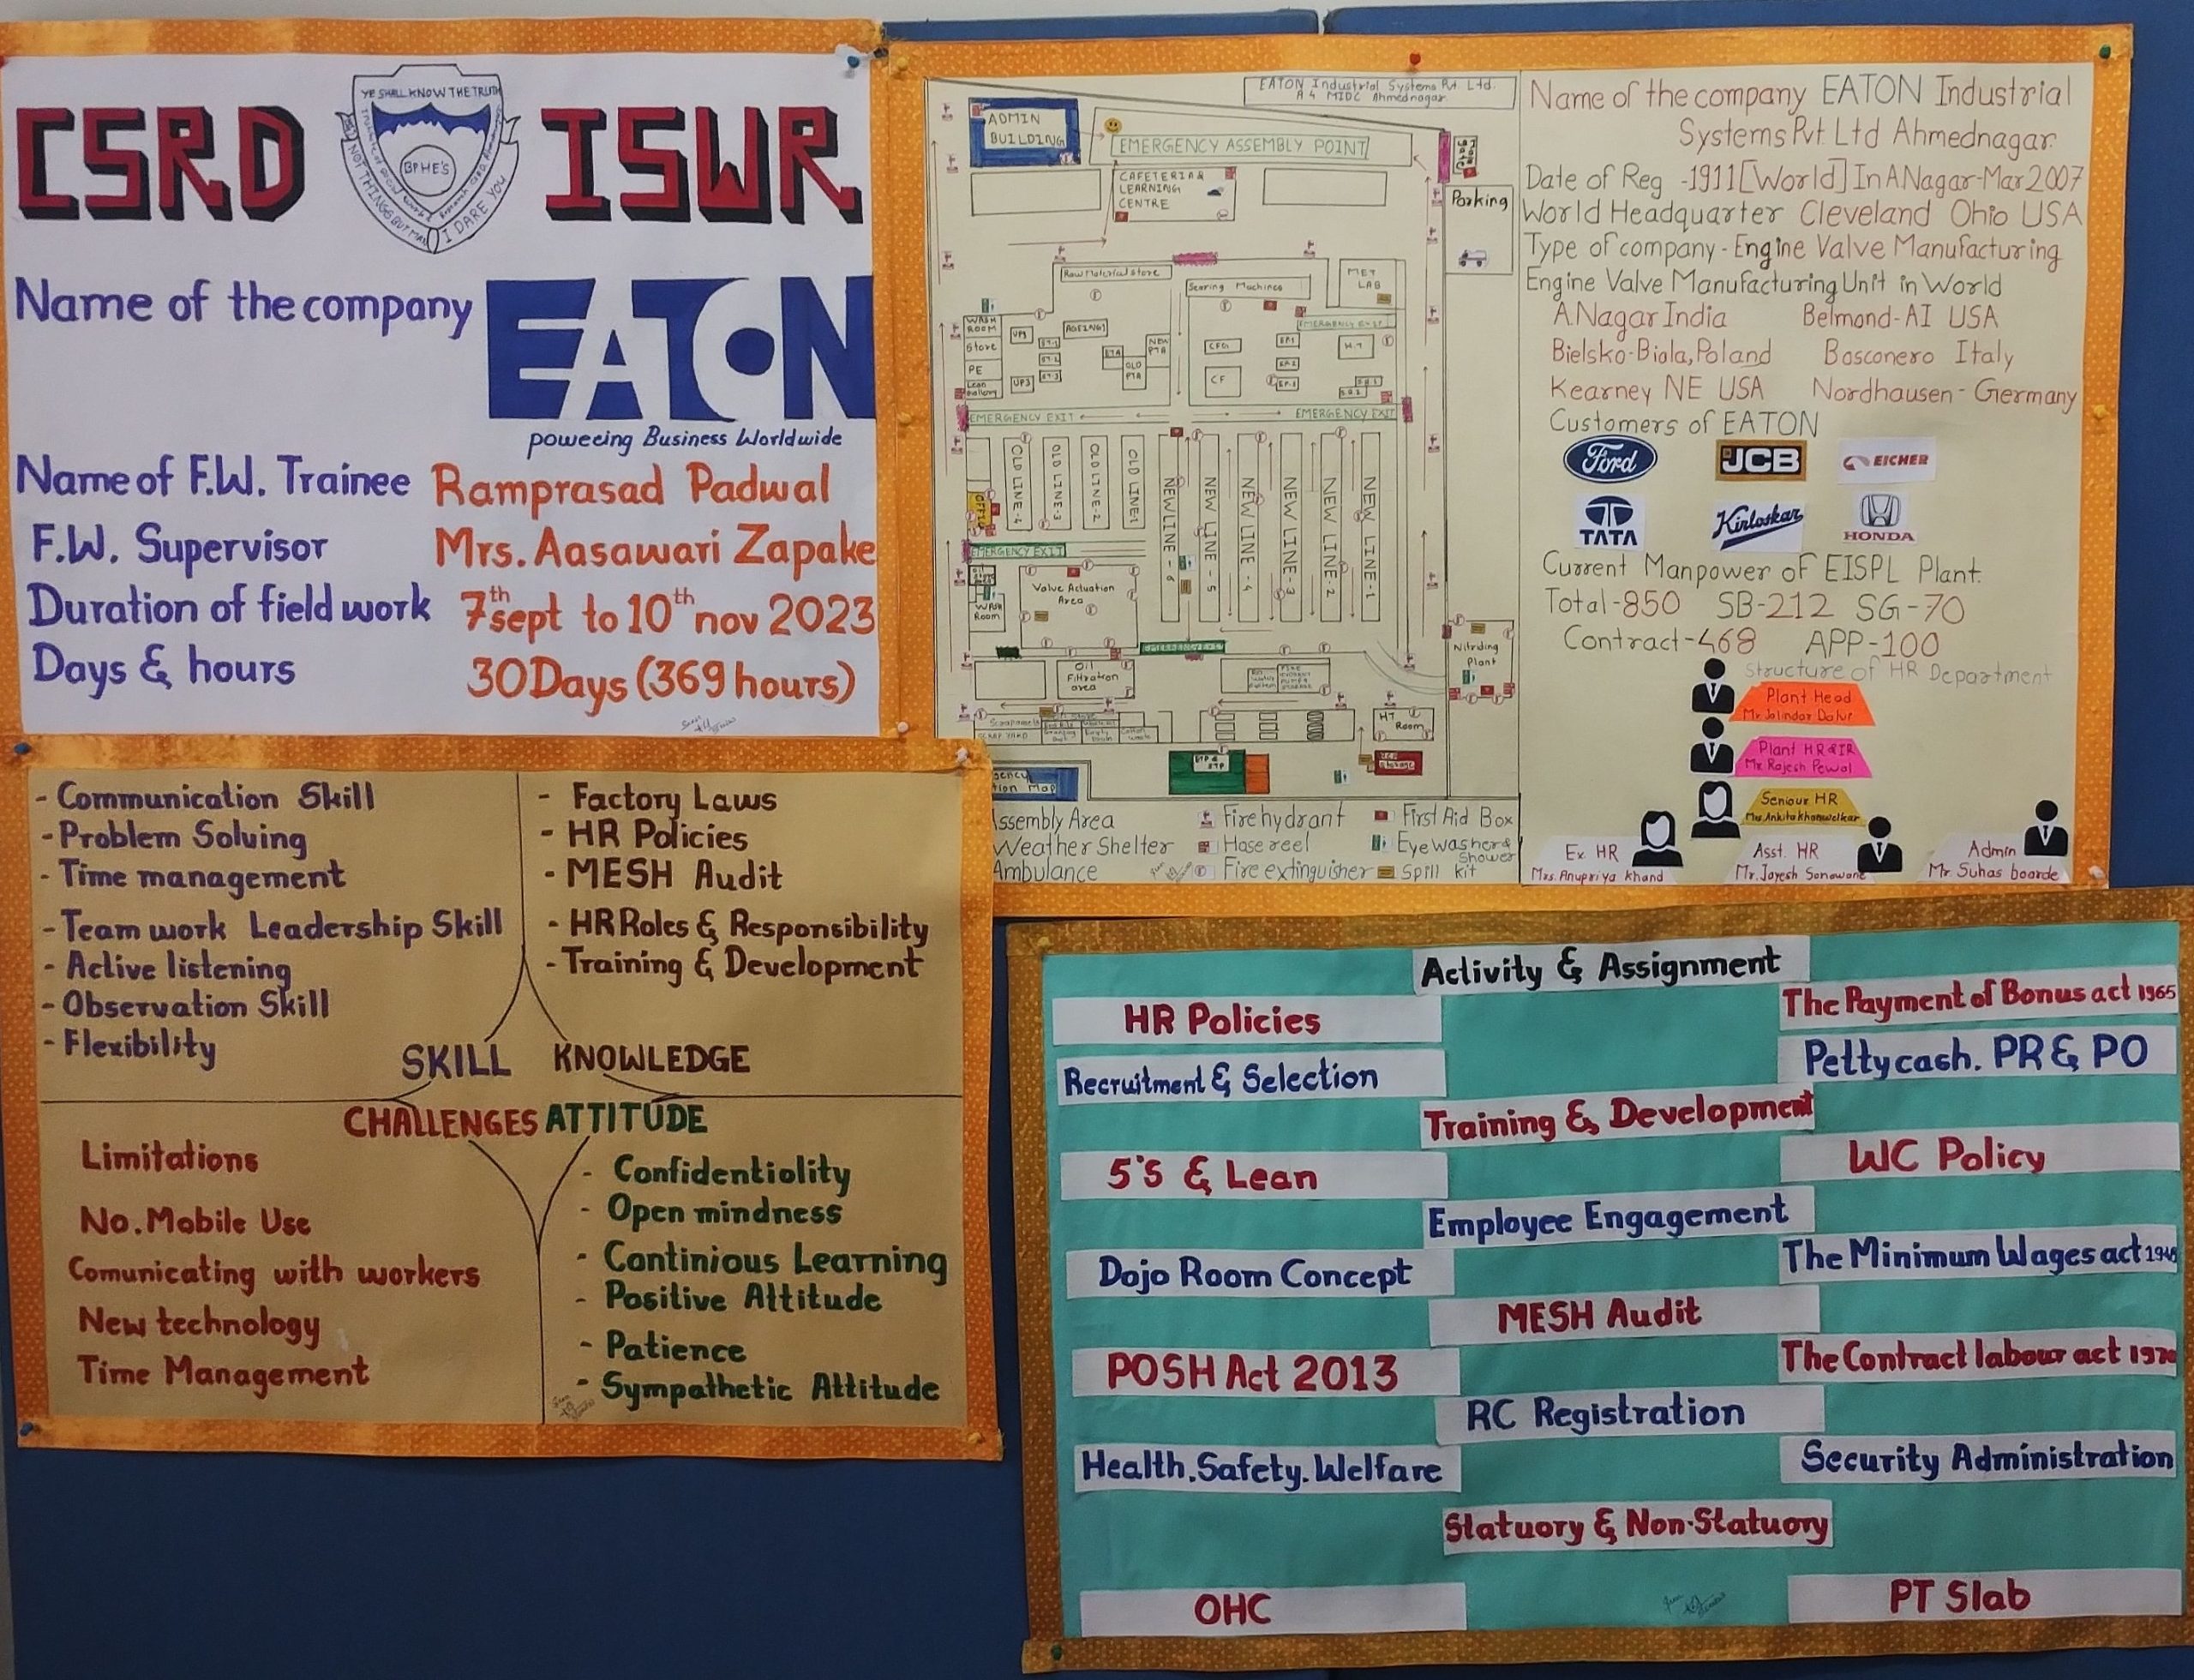 CSRD ISWR
YE SHALL KNOW THE TRUTH
BPHE'S
NOT THINGS BUT MEN
I DARE YOU
Name of the company EATON
poweeing Business Worldwide
Name of F.W. Trainee Ramprasad Padwal
F.W. Supervisor Mrs. Aasawari Zapake
Duration of field work 7th sept to 10th nov 2023
Days & hours 30Days (369 hours)
EATON Industrial Systems Pvt. Ltd.
A 4 MIDC Ahmednagar
ADMIN
BUILDING
EMERGENCY ASSEMBLY POINT
CAFETERIA &
LEARNING
CENTRE
Parking
Raw Material Store
MET
LAB
WASH
ROOM
Store
PE
UP3
AGEING
NEW
PTA
OLD
PTA
CF
H.T
EMERGENCY EXIT
EMERGENCY EXIT
EMERGENCY EXIT
OLD LINE-4
OLD LINE-3
OLD LINE-2
OLD LINE-1
NEW LINE - 6
NEW LINE - 5
NEW LINE - 4
NEW LINE - 3
NEW LINE - 2
NEW LINE - 1
EMERGENCY EXIT
Valve Actuation
Area
WASH
ROOM
EMERGENCY EXIT
Nitriding
Plant
Oil
Filtration
area
HT
Room
SCRAP YARD
ETP &
STP
Assembly Area
Weather Shelter
Ambulance
Firehydrant
Hose reel
Fire extinguisher
First Aid Box
Eye washer &
Shower
Spill kit
Name of the company EATON Industrial
Systems Pvt. Ltd Ahmednagar.
Date of Reg -1911[World] In ANagar-Mar 2007
World Headquarter Cleveland Ohio USA
Type of company - Engine Valve Manufacturing
Engine Valve Manufacturing Unit in World
ANagar India Belmond-AI USA
Bielsko-Biala, Poland Bosconero Italy
Kearney NE USA Nordhausen - Germany
Customers of EATON
Ford JCB EICHER
TATA Kirloskar HONDA
Current Manpower of EISPL Plant.
Total-850 SB-212 SG-70
Contract-468 APP-100
Structure of HR Department
Plant Head
Mr Jalindar Datur
Plant HR & IR
Mr. Rajesh Pewal
Seniour HR
Mrs. Ankita khanwelkar
Ex HR
Mrs. Anupriya khand
Asst. HR
Mr. Jayesh Sonawane
Admin
Mr Suhas boarde
- Communication Skill
- Problem Solving
- Time management
- Team work Leadership Skill
- Active listening
- Observation Skill
- Flexibility
SKILL
- Factory Laws
- HR Policies
- MESH Audit
- HR Roles & Responsibility
- Training & Development
KNOWLEDGE
CHALLENGES
Limitations
No. Mobile Use
Comunicating with workers
New technology
Time Management
ATTITUDE
- Confidentiolity
- Open mindness
- Continious Learning
- Positive Attitude
- Patience
- Sympathetic Attitude
Activity & Assignment
HR Policies
The Payment of Bonus act 1965
Recruitment & Selection
Petty cash. PR & PO
Training & Development
5'S & Lean
WC Policy
Employee Engagement
Dojo Room Concept
The Minimum Wages act 1948
MESH Audit
POSH Act 2013
The Contract labour act 1970
RC Registration
Health. Safety. Welfare
Security Administration
Statuory & Non-Statuory
OHC
PT Slab